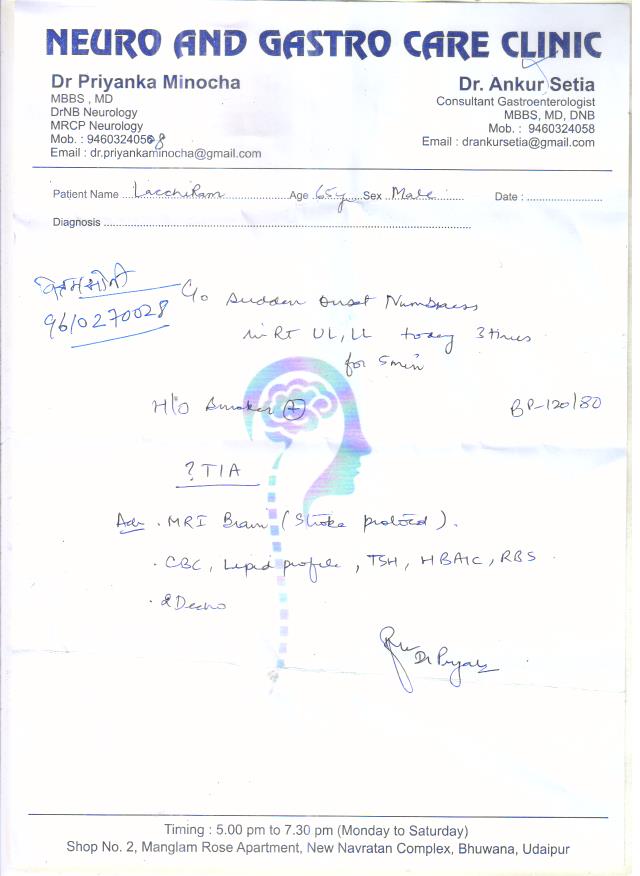 NEURO AND GASTRO CARE CLINIC
Dr Priyanka Minocha
MBBS , MD
DrNB Neurology
MRCP Neurology
Mob. : 9460324058
Email : dr.priyankaminocha@gmail.com
Dr. Ankur Setia
Consultant Gastroenterologist
MBBS, MD, DNB
Mob : 9460324058
Email : drankursetia@gmail.com
Patient Name Lacchiram Age 65y Sex Male Date :
Diagnosis
9610270028
C/o Sudden onset Numbness
in Rt UL, LL today 3 times
for 5 min
H/o Smoker +
BP-120/80
? TIA
Adv . MRI Brain (Stroke protocol).
. CBC, Lipid profile, TSH, HBA1C, RBS
. 2Decho
Timing : 5.00 pm to 7.30 pm (Monday to Saturday)
Shop No. 2, Manglam Rose Apartment, New Navratan Complex, Bhuwana, Udaipur